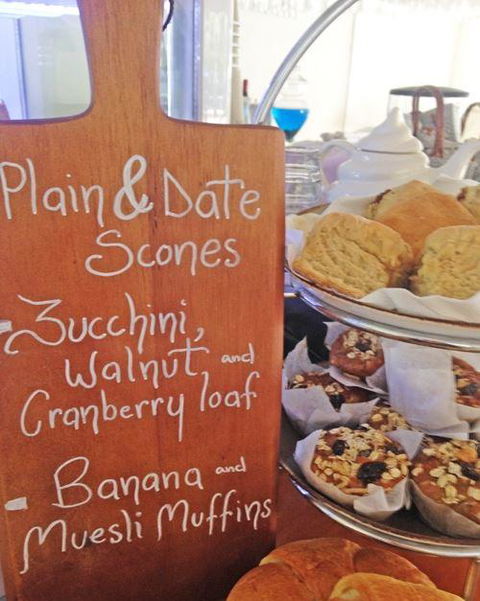 Plain & Date
Scones
- Zucchini,
Walnut and
Cranberry loaf
- Banana and
Muesli Muffins